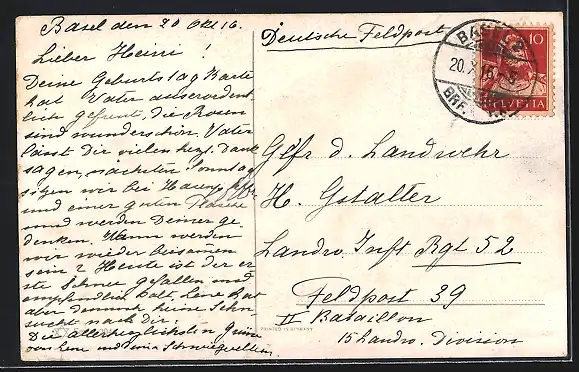 Basel den 20 Okt 16.
Lieber Heini !
Deine Geburtstag Karte
hat Vater ausserordent-
lich gefreut, die Rosen
sind wunderschön, Vater
lässt Dir vielen herz. Dank
sagen, nächsten Sonntag
sitzen wir bei
und einer guten Flasche
und werden Deiner ge-
denken. Wann werden
wir wieder beisamen
sein? Heute ist der er-
ste Schnee gefallen und
empfindlich kalt, Lene hat
aber dennoch keine Sehn
sucht nach dir!
Die allerherzlichsten Grüsse
von Lene und deinen Schwiegereltern.
Deutsche Feldpost
BASEL 2
20.X.16.
BRF.
10
HELVETIA
Gefr d. Landwehr
H. Gstalter
Landw Inft Rgt 52
Feldpost 39
II Bataillon
15 Landw. Division
PRINTED IN GERMANY